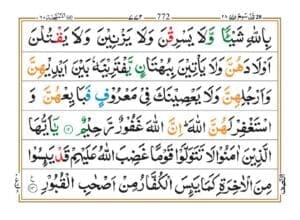 بِاللّٰهِ شَيْئًا وَّلَا يَسْرِقْنَ وَلَا يَزْنِيْنَ وَلَا يَقْتُلْنَ
اَوْلَادَهُنَّ وَلَا يَاْتِيْنَ بِبُهْتَانٍ يَّفْتَرِيْنَهٗ بَيْنَ اَيْدِيْهِنَّ
وَاَرْجُلِهِنَّ وَلَا يَعْصِيْنَكَ فِيْ مَعْرُوْفٍ فَبَايِعْهُنَّ وَ
اسْتَغْفِرْ لَهُنَّ اللّٰهَ اِنَّ اللّٰهَ غَفُوْرٌ رَّحِيْمٌ يٰٓاَيُّهَا
الَّذِيْنَ اٰمَنُوْا لَا تَتَوَلَّوْا قَوْمًا غَضِبَ اللّٰهُ عَلَيْهِمْ قَدْ يَئِسُوْا
مِنَ الْاٰخِرَةِ كَمَا يَئِسَ الْكُفَّارُ مِنْ اَصْحٰبِ الْقُبُوْرِ